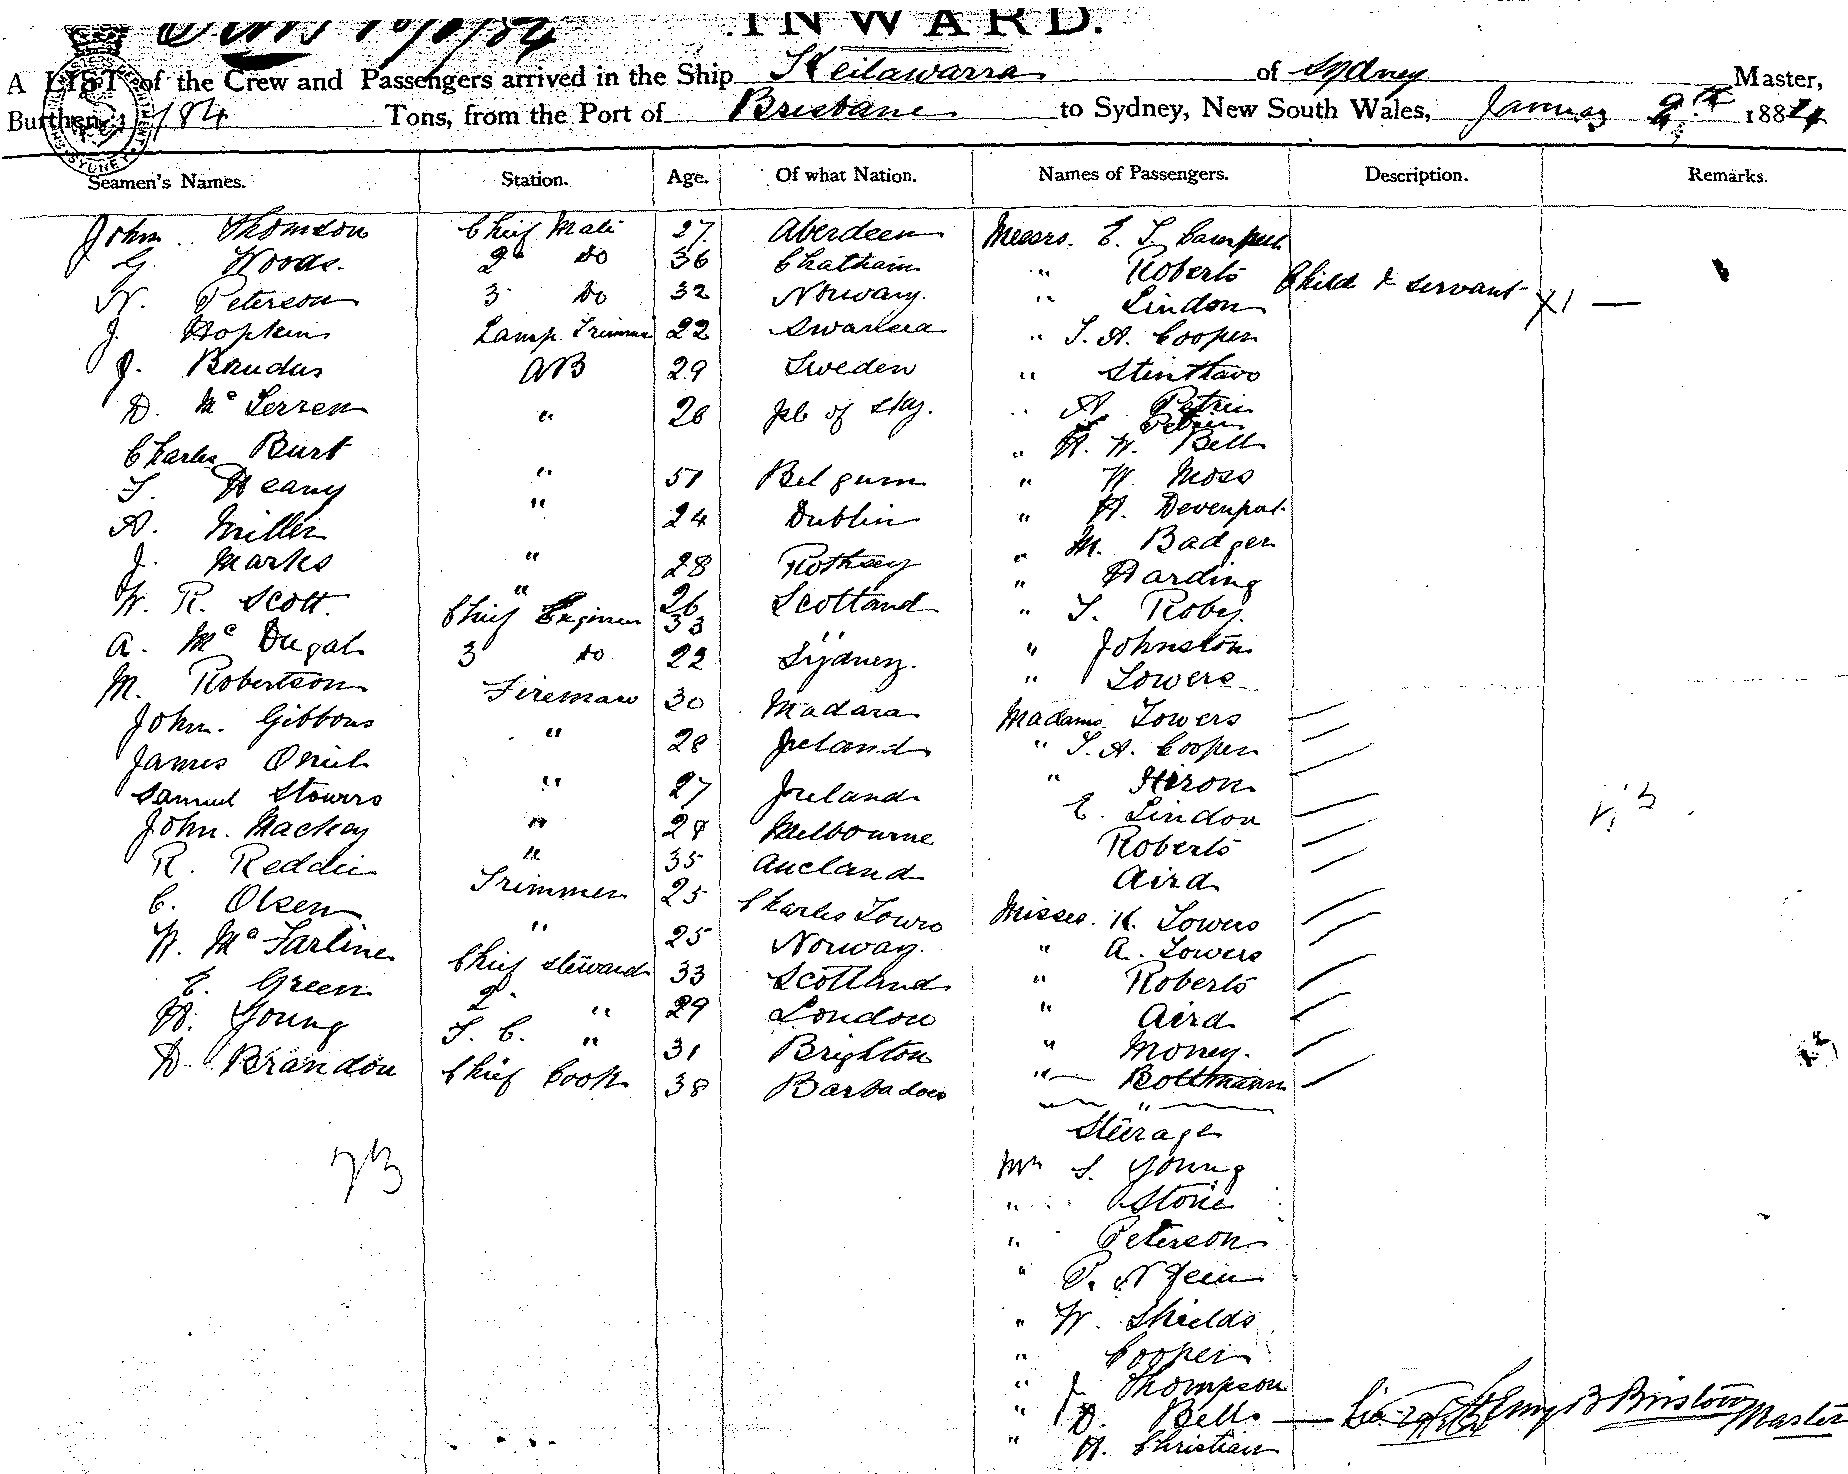 INWARD.
A LIST of the Crew and Passengers arrived in the Ship Keilawarra of Sydney Master,
Burthen 184 Tons, from the Port of Brisbane to Sydney, New South Wales, January 9th 1884
Seamen's Names. Station. Age. Of what Nation. Names of Passengers. Description. Remarks.
John Thomson Chief Mate 27 Aberdeen Messrs. E. T.
G Woods. 2 Do 36 Chatham " Roberts Child & servant
N. Peterson 3 Do 32 Norway. " Lindon X1 —
J. Hopkin Lamp Trimmer 22 Swansea " T. A. Cooper
J. Baudus AB 29 Sweden "
D. Mc " 26 of Sky. " A. Petrie
Charles Burt " H. W. Bell
T. Heany " 51 Belgum " W Moss
A. Miller " 24 Dublin " H. Devenport
J. Marks " 28 Rothsey " M. Badger
W. R. Scott. " 26 Scotland " Harding
Chief Engineer 33 " " T. Roby.
A. Mc Dugal 3 Do 22 Sydney. " Johnston
M. Robertson Fireman 30 Madara " Towers
John. Gibbons " 28 Ireland Madams. Towers
James Oniel " 27 Ireland " T. A. Cooper
Samuel Stowers " 29 Melbourne " Heron
John. Mackay " 35 Aucland E. Lindon
R. Reddie Trimmer 25 Charles Towrs Roberts
C. Olsen " 25 Norway. Aird
W. Mc Farline Chief Steward 33 Scotland Misses. K. Towers
E. Green 2 " 29 London " A. Towers
H. Young S. C. " 31 Brighton " Roberts
D. Brandon Chief Cook 38 Barbadoes " Aird
" Money.
" Boltmann
"
Steerage
Mr S. Young
" Stone
" Peterson
"
" W. Shields
" Cooper
" J Thompson
" D. Bell
" A. Christian
Henry B Bristow Master